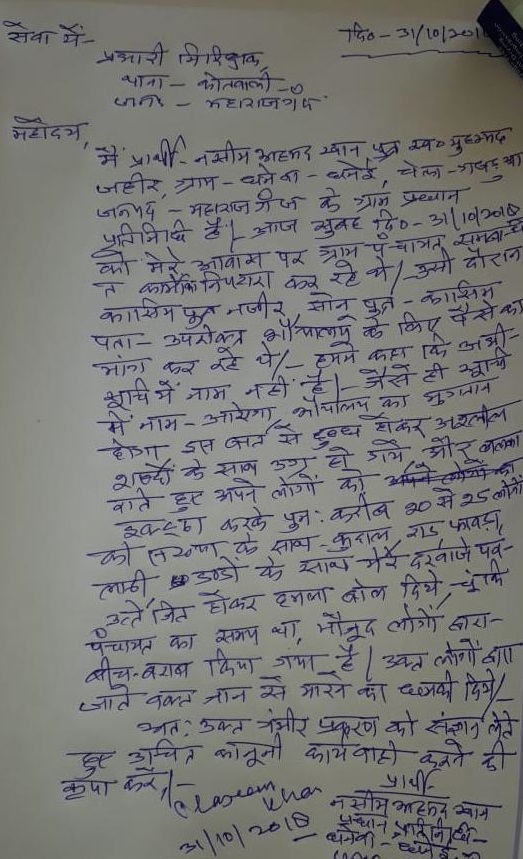 सेवा में-
दि०- 31/10/2018
प्रभारी निरिक्षक,
थाना - कोतवाली
जनपद - महाराजगंज
महोदय,
मैं प्रार्थी- नसीम अहमद खान पुत्र स्व० मुहम्मद
जहीर, ग्राम - धनेवा - धनेई, पोस्ट -
जनपद - महाराजगंज के ग्राम प्रधान
प्रतिनिधि है। आज सुबह दि०- 31/10/2018
को मेरे आवास पर ग्राम पंचायत सम्बन्धि
त कार्यो का निपटारा कर रहे थे/- उसी दौरान
कासिम पुत्र नजीर, सोनू पुत्र - कासिम
पता- उपरोक्त शौचालय के लिए पैसे की
मांग कर रहे थे/- हमने कहा कि अभी-
सूचि में नाम नहीं है। जैसे ही सूचि
में नाम - आयेगा, शौचालय का भुगतान
होगा इस बात से क्षुब्ध होकर अश्लील
शब्दों के साथ उग्र हो गये और
वाते हुए अपने लोगों को
इकट्ठा करके पुनः करीब 20 से 25 लोगों
को के साथ - कुदाल, राड, फावड़ा,
लाठी, डण्डो के साथ मेरे दरवाजे पर
उत्तेजित होकर हमला बोल दिये, चूंकि
पंचायत का समय था, मौजूद लोगों द्वारा-
बीच-बचाव किया गया है। उक्त लोगों द्वारा
जाते वक्त जान से मारने का धमकी दिये/-
अतः उक्त गंभीर प्रकरण को संज्ञान लेते
हुए उचित कानूनी कार्यवाही करने की
कृपा करें,/-
प्रार्थी-
Naseem Khan
नसीम अहमद खान
31/10/2018
प्रधान प्रतिनिधि-
धनेवा - धनेई